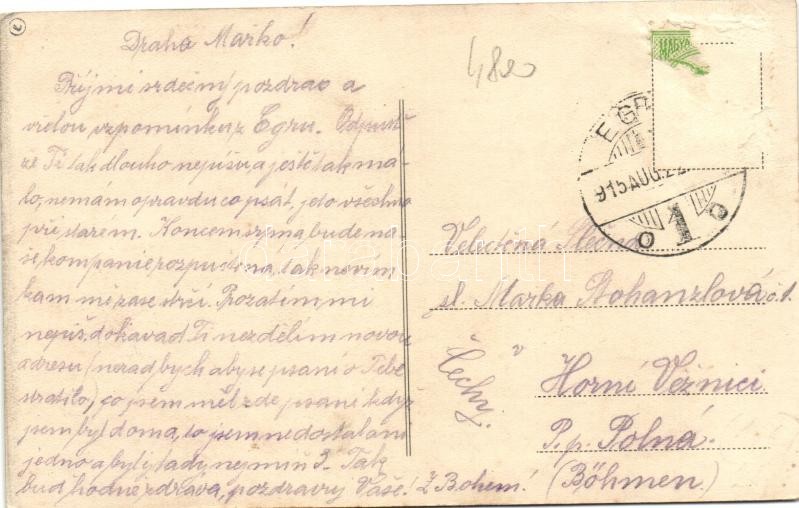 Drahá Mařko!
Přijmi srdečný pozdrav a
vřelou vzpomínku z Egru. Odpusť
že Ti tak dlouho nepíšu, a ještě tak má-
lo, nemám opravdu co psát, je to všechno
při starém. Koncem srpna bude na-
še kompanie rozpuštěna, tak nevím
kam mě zase strčí. Prozatím, mi
nepiš, dokavad Ti nezdělím novou
adresu (nerad bych aby se psaní o Tebe
ztratilo,) co jsem měl zde psaní když
jsem byl doma, to jsem nedostal ani
jedno a byly tady nejmíň 3. Tak
buď hodně zdráva, pozdravuj Vaše! Z Bohem!
482
MAGYA
EGER
915 AUG. 22
1
Velectěná Slečna
sl. Mařka Bohanzlová č. 1.
v Horní Věžnici
P. p. Polná.
(Böhmen.)
Čechy.